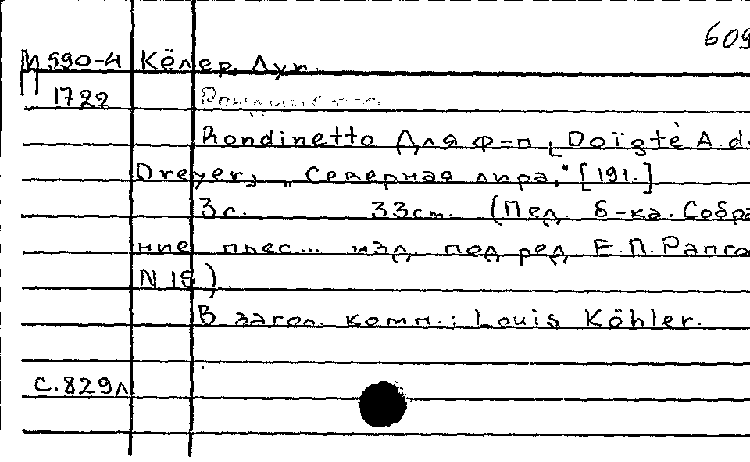 609
М 590-4 Кёлер, Лун.
П 1722
Rondinetto Для ф-п [Doïgtè A. d.
Dreyer], „Северная лира," [191.]
3с. 33см. (Пед. б-ка. Собра
ние пьес... изд. под ред Е.П. Рапго
N 18)
В загол. комп.: Louis Köhler.
с. 829л